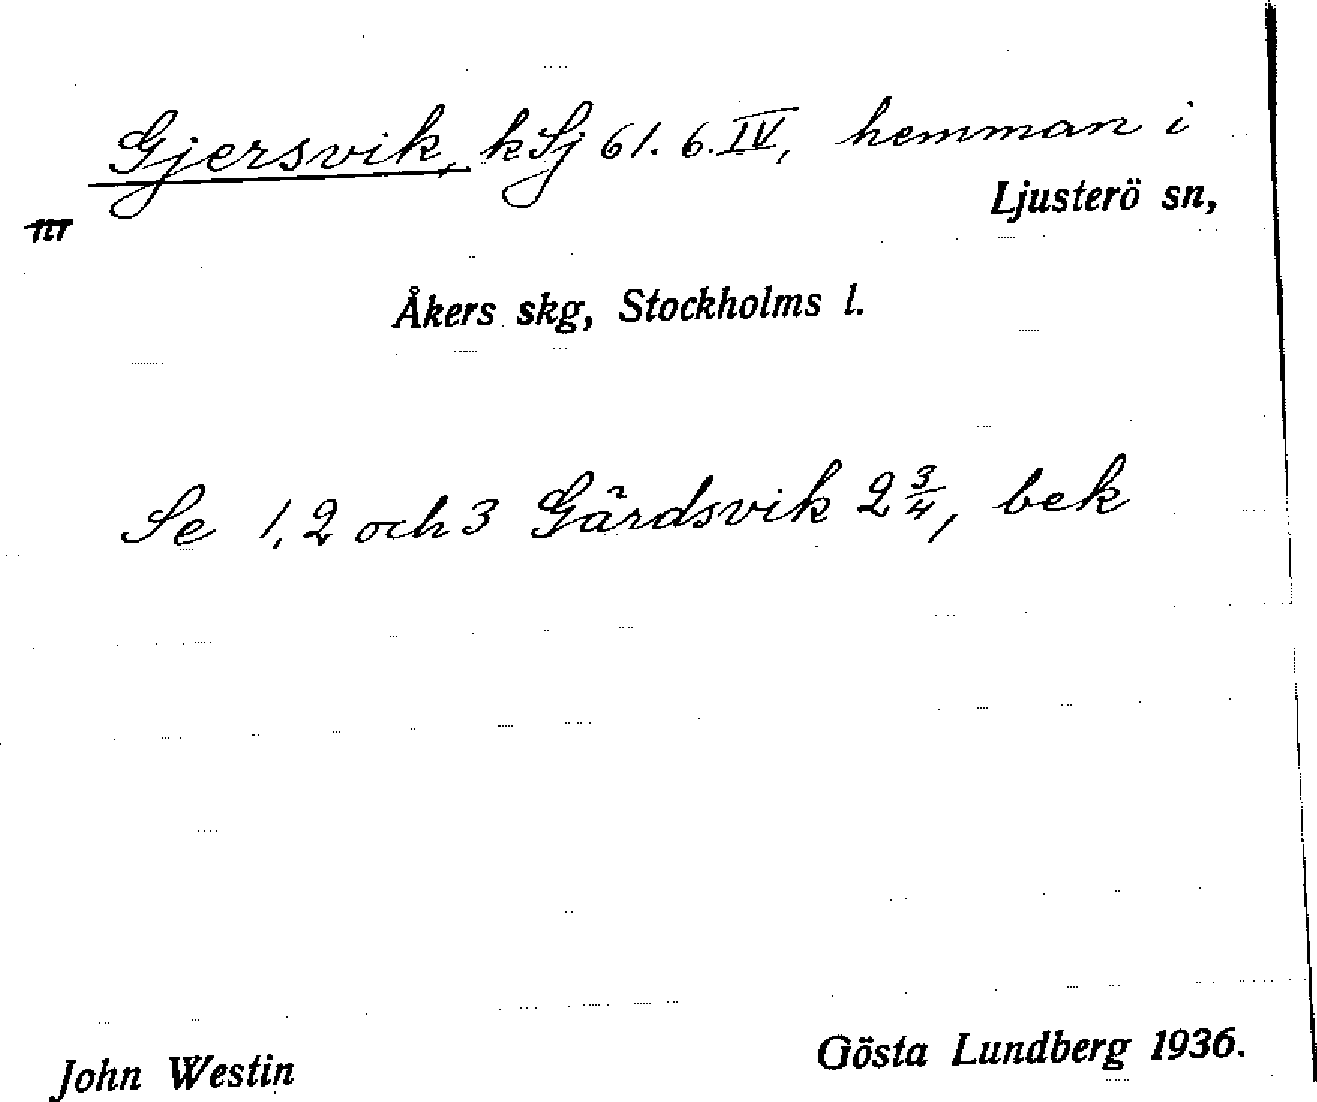 Gjersvik, kSj 61. 6. IV, hemman i
Ljusterö sn,
nr
Åkers skg, Stockholms l.
Se 1, 2 och 3 Gärdsvik 2 3/4, bek
John Westin
Gösta Lundberg 1936.